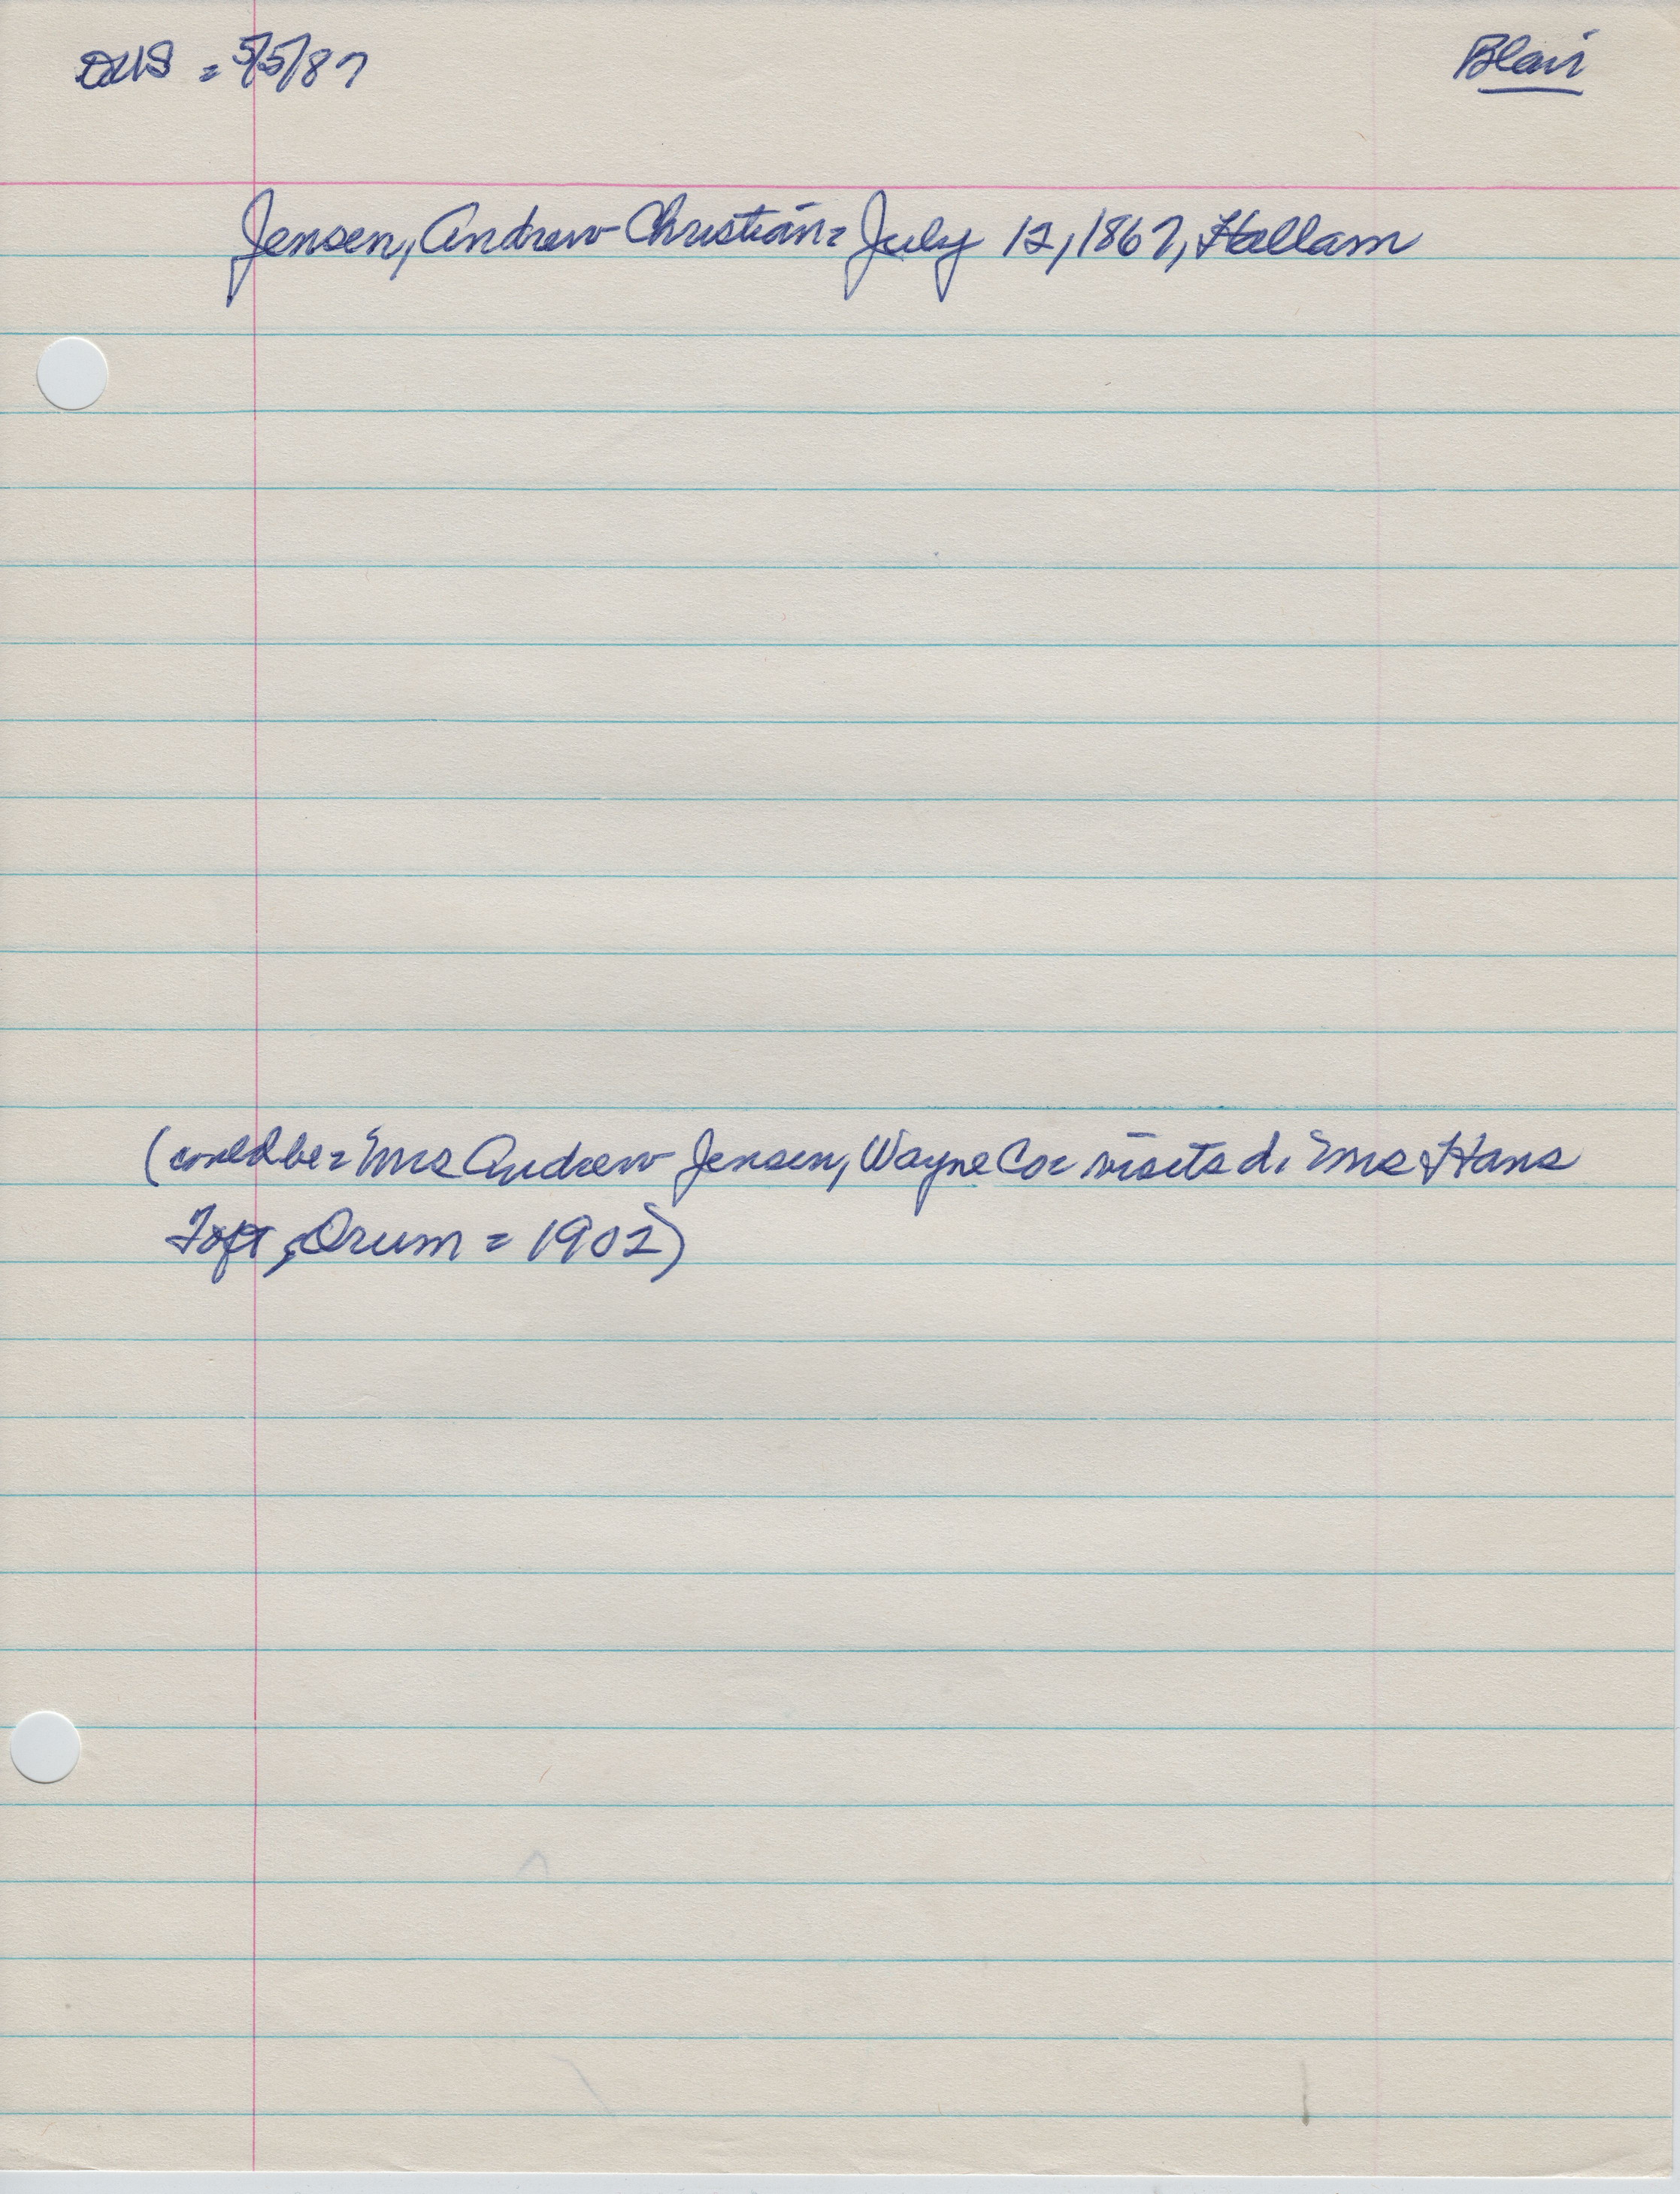 = 5/5/87 Blair
Jensen, Andrew Christian = July 12, 1867, Hallam
(could be = Mrs Andrew Jensen, Wayne Co = visits d. Mrs Hans
Toft, Orum = 1902)